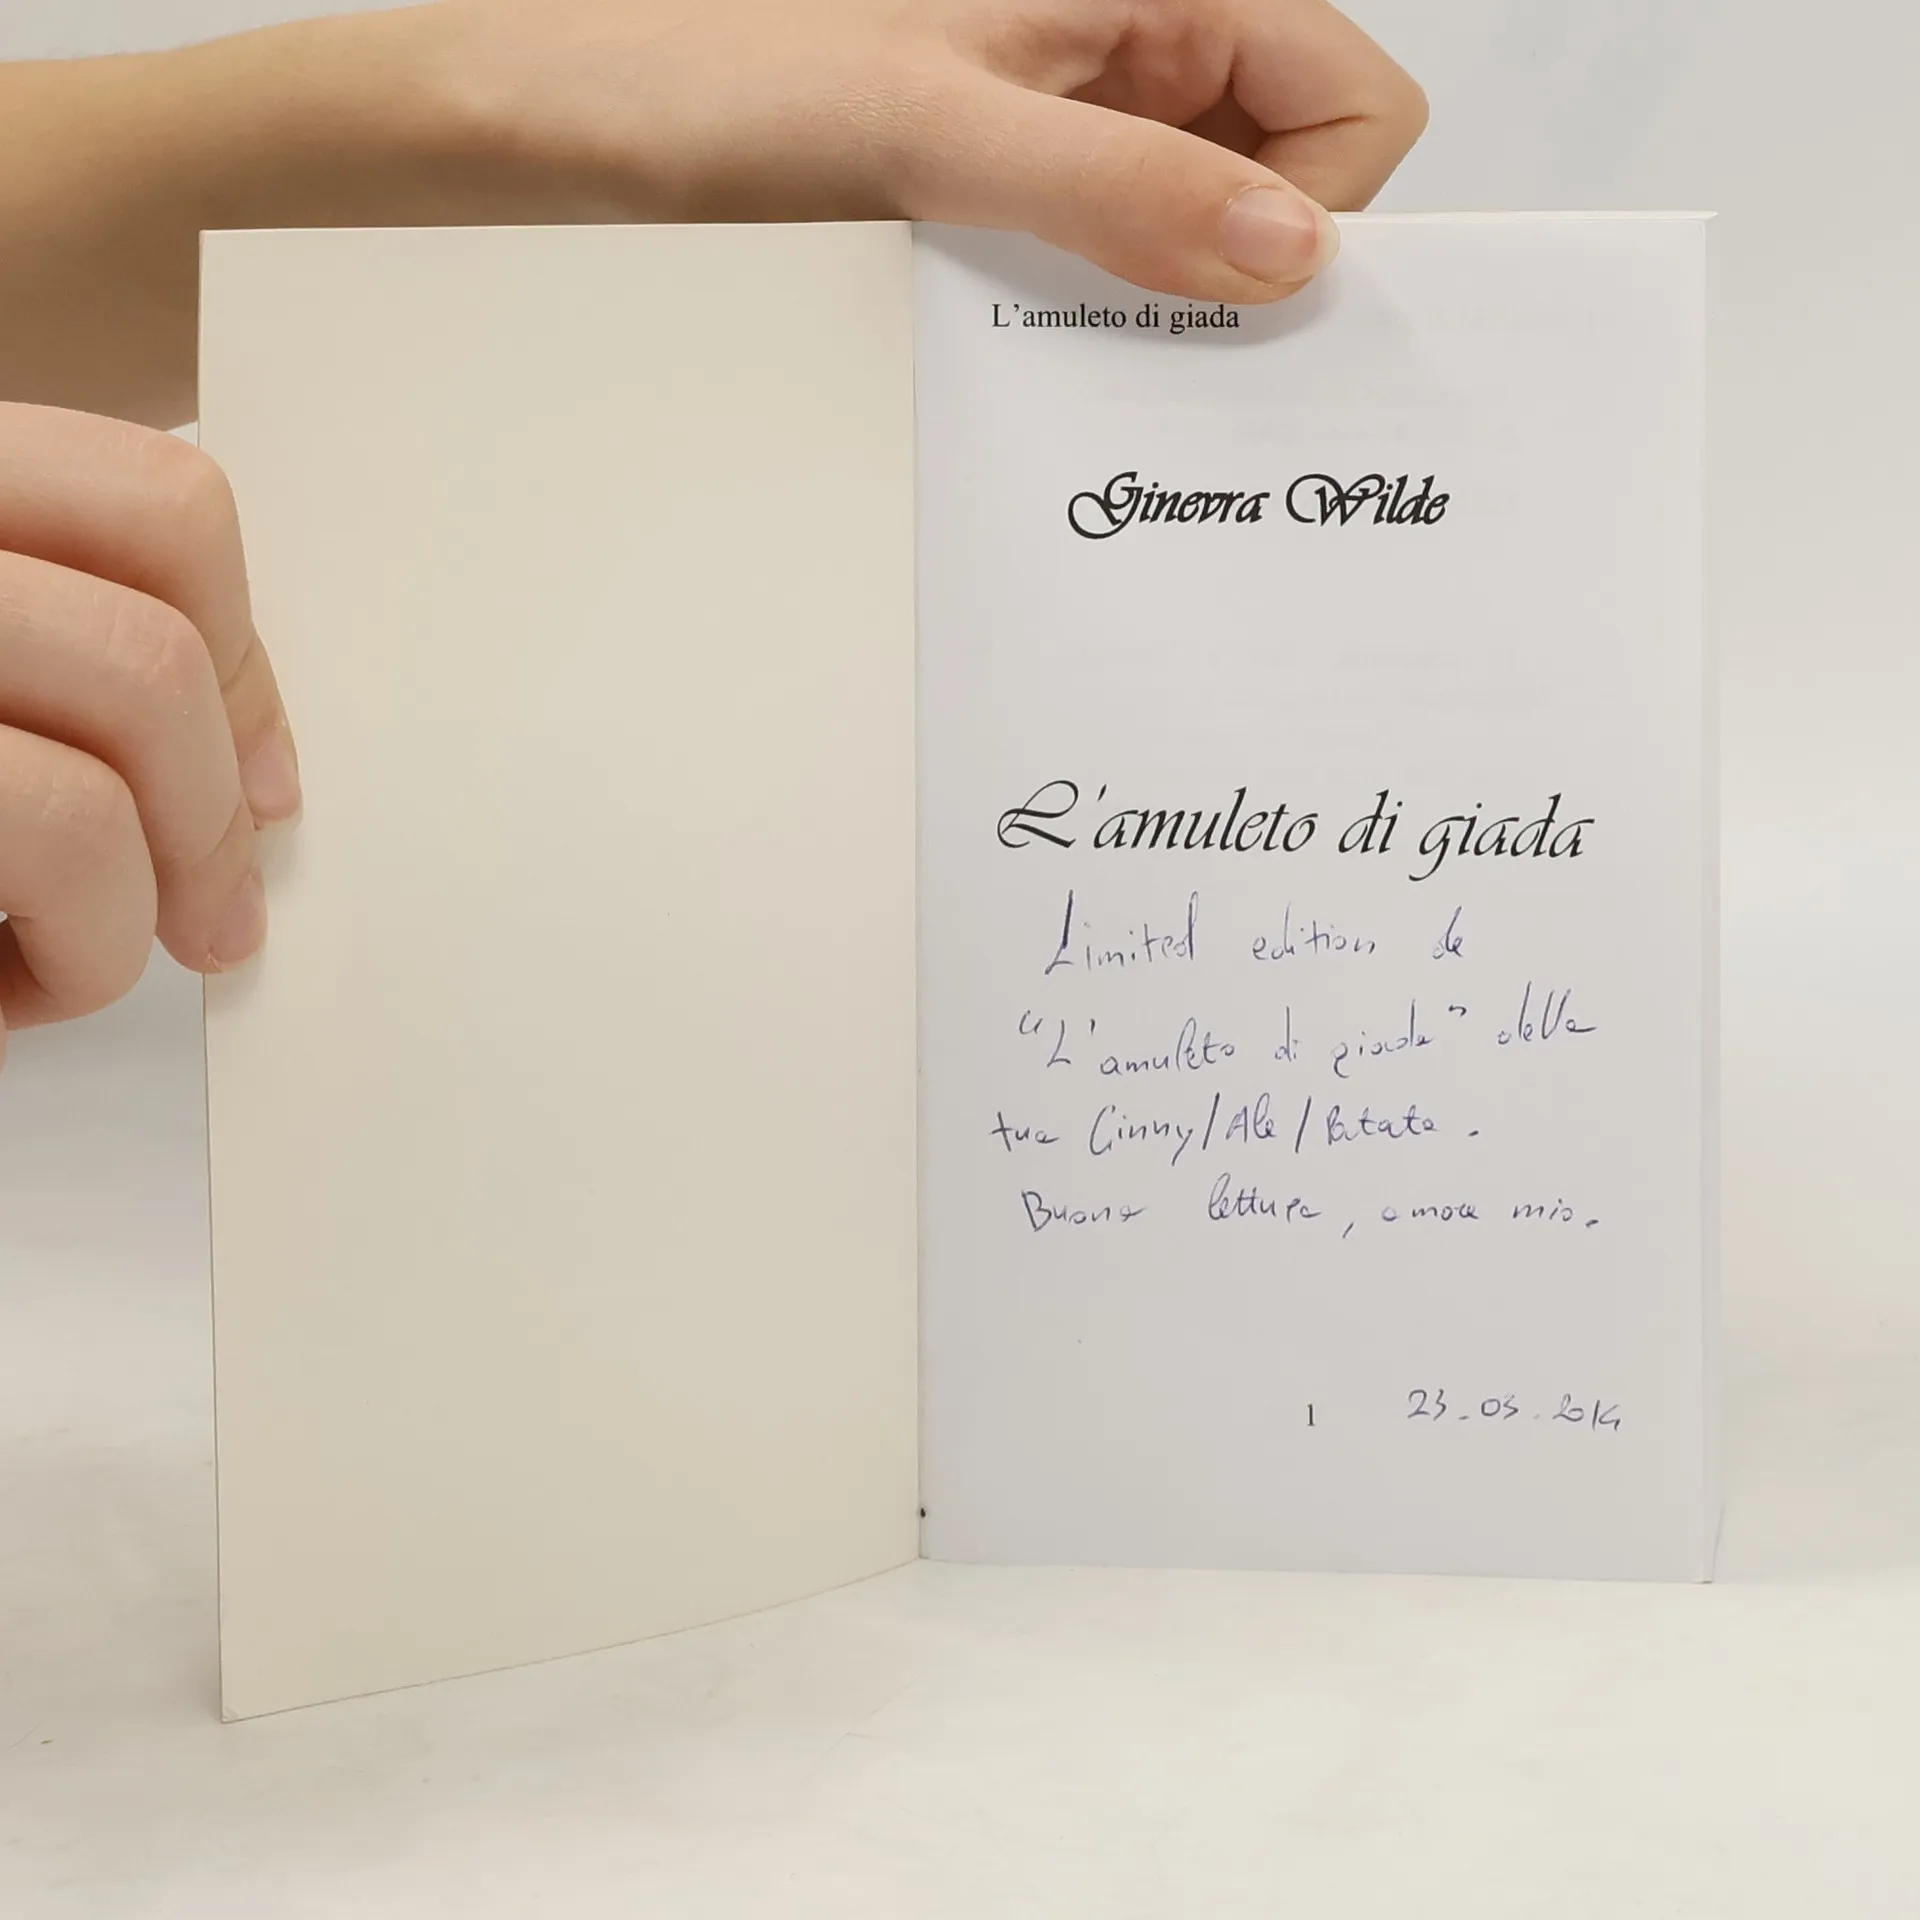 L'amuleto di giada
Ginevra Wilde
L'amuleto di giada
Limited edition de
"L'amuleto di giada" della
tua Ginny/Ale/Patata.
Buona lettura, amore mio.
1 23.03.2014